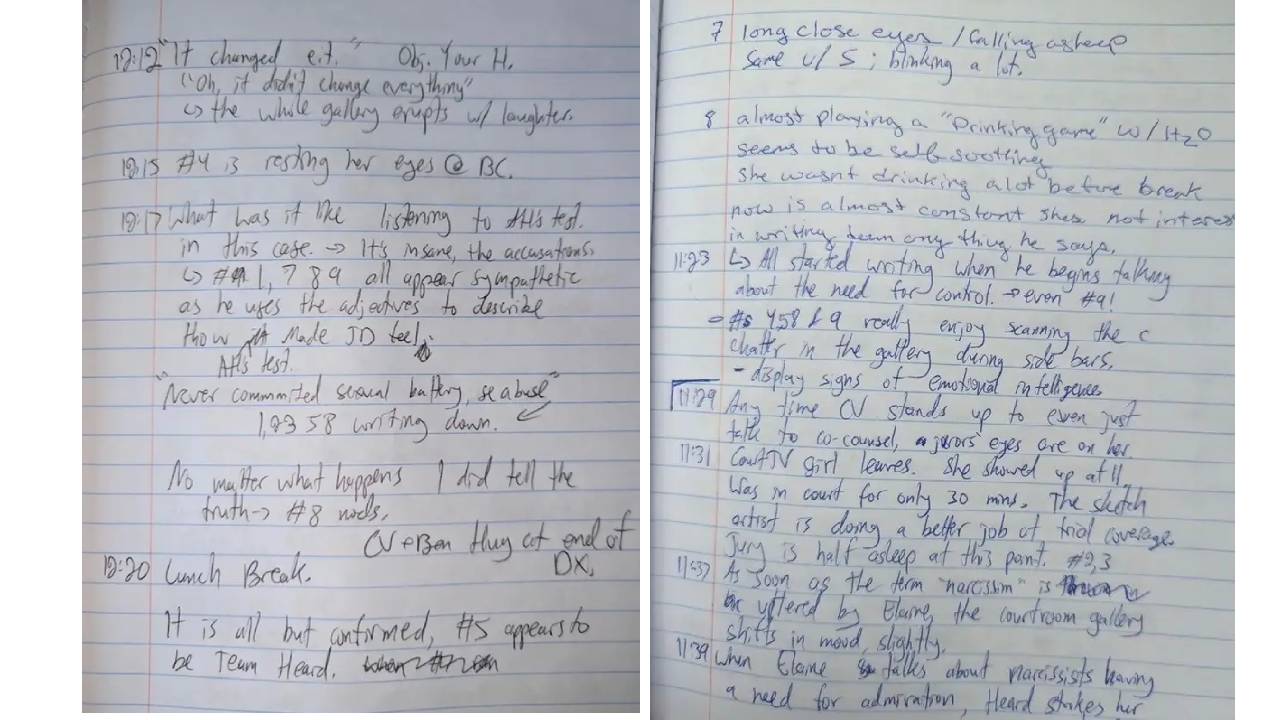 12:12 "It changed e.t." Obj. Your H.
"Oh, it didn't change everything"
↳ the whole gallery erupts w/ laughter.
12:15 #4 is resting her eyes @ BC.
12:17 What was it like listening to AH's test.
in this case. → It's insane, the accusations.
↳ # 1, 7 8 9 all appear sympathetic
as he uses the adjectives to describe
how made JD feel.
AH's test.
"Never committed sexual battery, se abuse"
1, 2 3 5 8 writing down.
No matter what happens I did tell the
truth → #8 nods.
CV + Ben hug at end of
12:20 Lunch Break. DX.
It is all but confirmed, #5 appears to
be Team Heard.
7 long close eyes / falling asleep
Same w/ 5 ; blinking a lot.
8 almost playing a "Drinking game" w/ H2O
seems to be self soothing
she wasnt drinking a lot before break
now is almost constant shes not interes
in writing down any thing he says,
11:23 ↳ All started writing when he begins talking
about the need for control. → even #9!
- #s 4, 5 8 & 9 really enjoy scanning the c
chatter in the gallery during side bars.
- display signs of emotional intelligence
11:29 Any time CV stands up to even just
talk to co-counsel, jurors' eyes are on her.
11:31 CourtTV girl leaves. She showed up at 11,
was in court for only 30 mins. The sketch
artist is doing a better job of trial coverage.
Jury is half asleep at this point. #2,3
11:37 As soon as the term "narcissim" is
uttered by Elaine, the courtroom gallery
shifts in mood, slightly.
11:39 When Elaine talks about narcissists having
a need for admiration, Heard strokes her